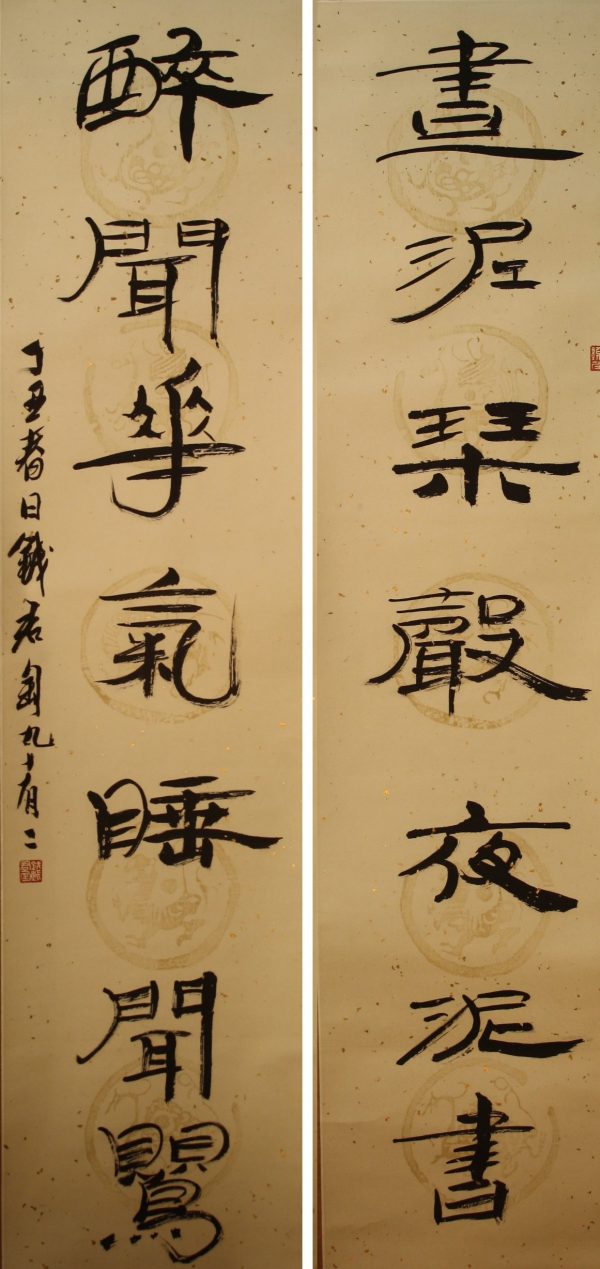 晝泥琹聲夜泥書
醉聞華氣睡聞鸎
丁丑春日錢君匋九十有二